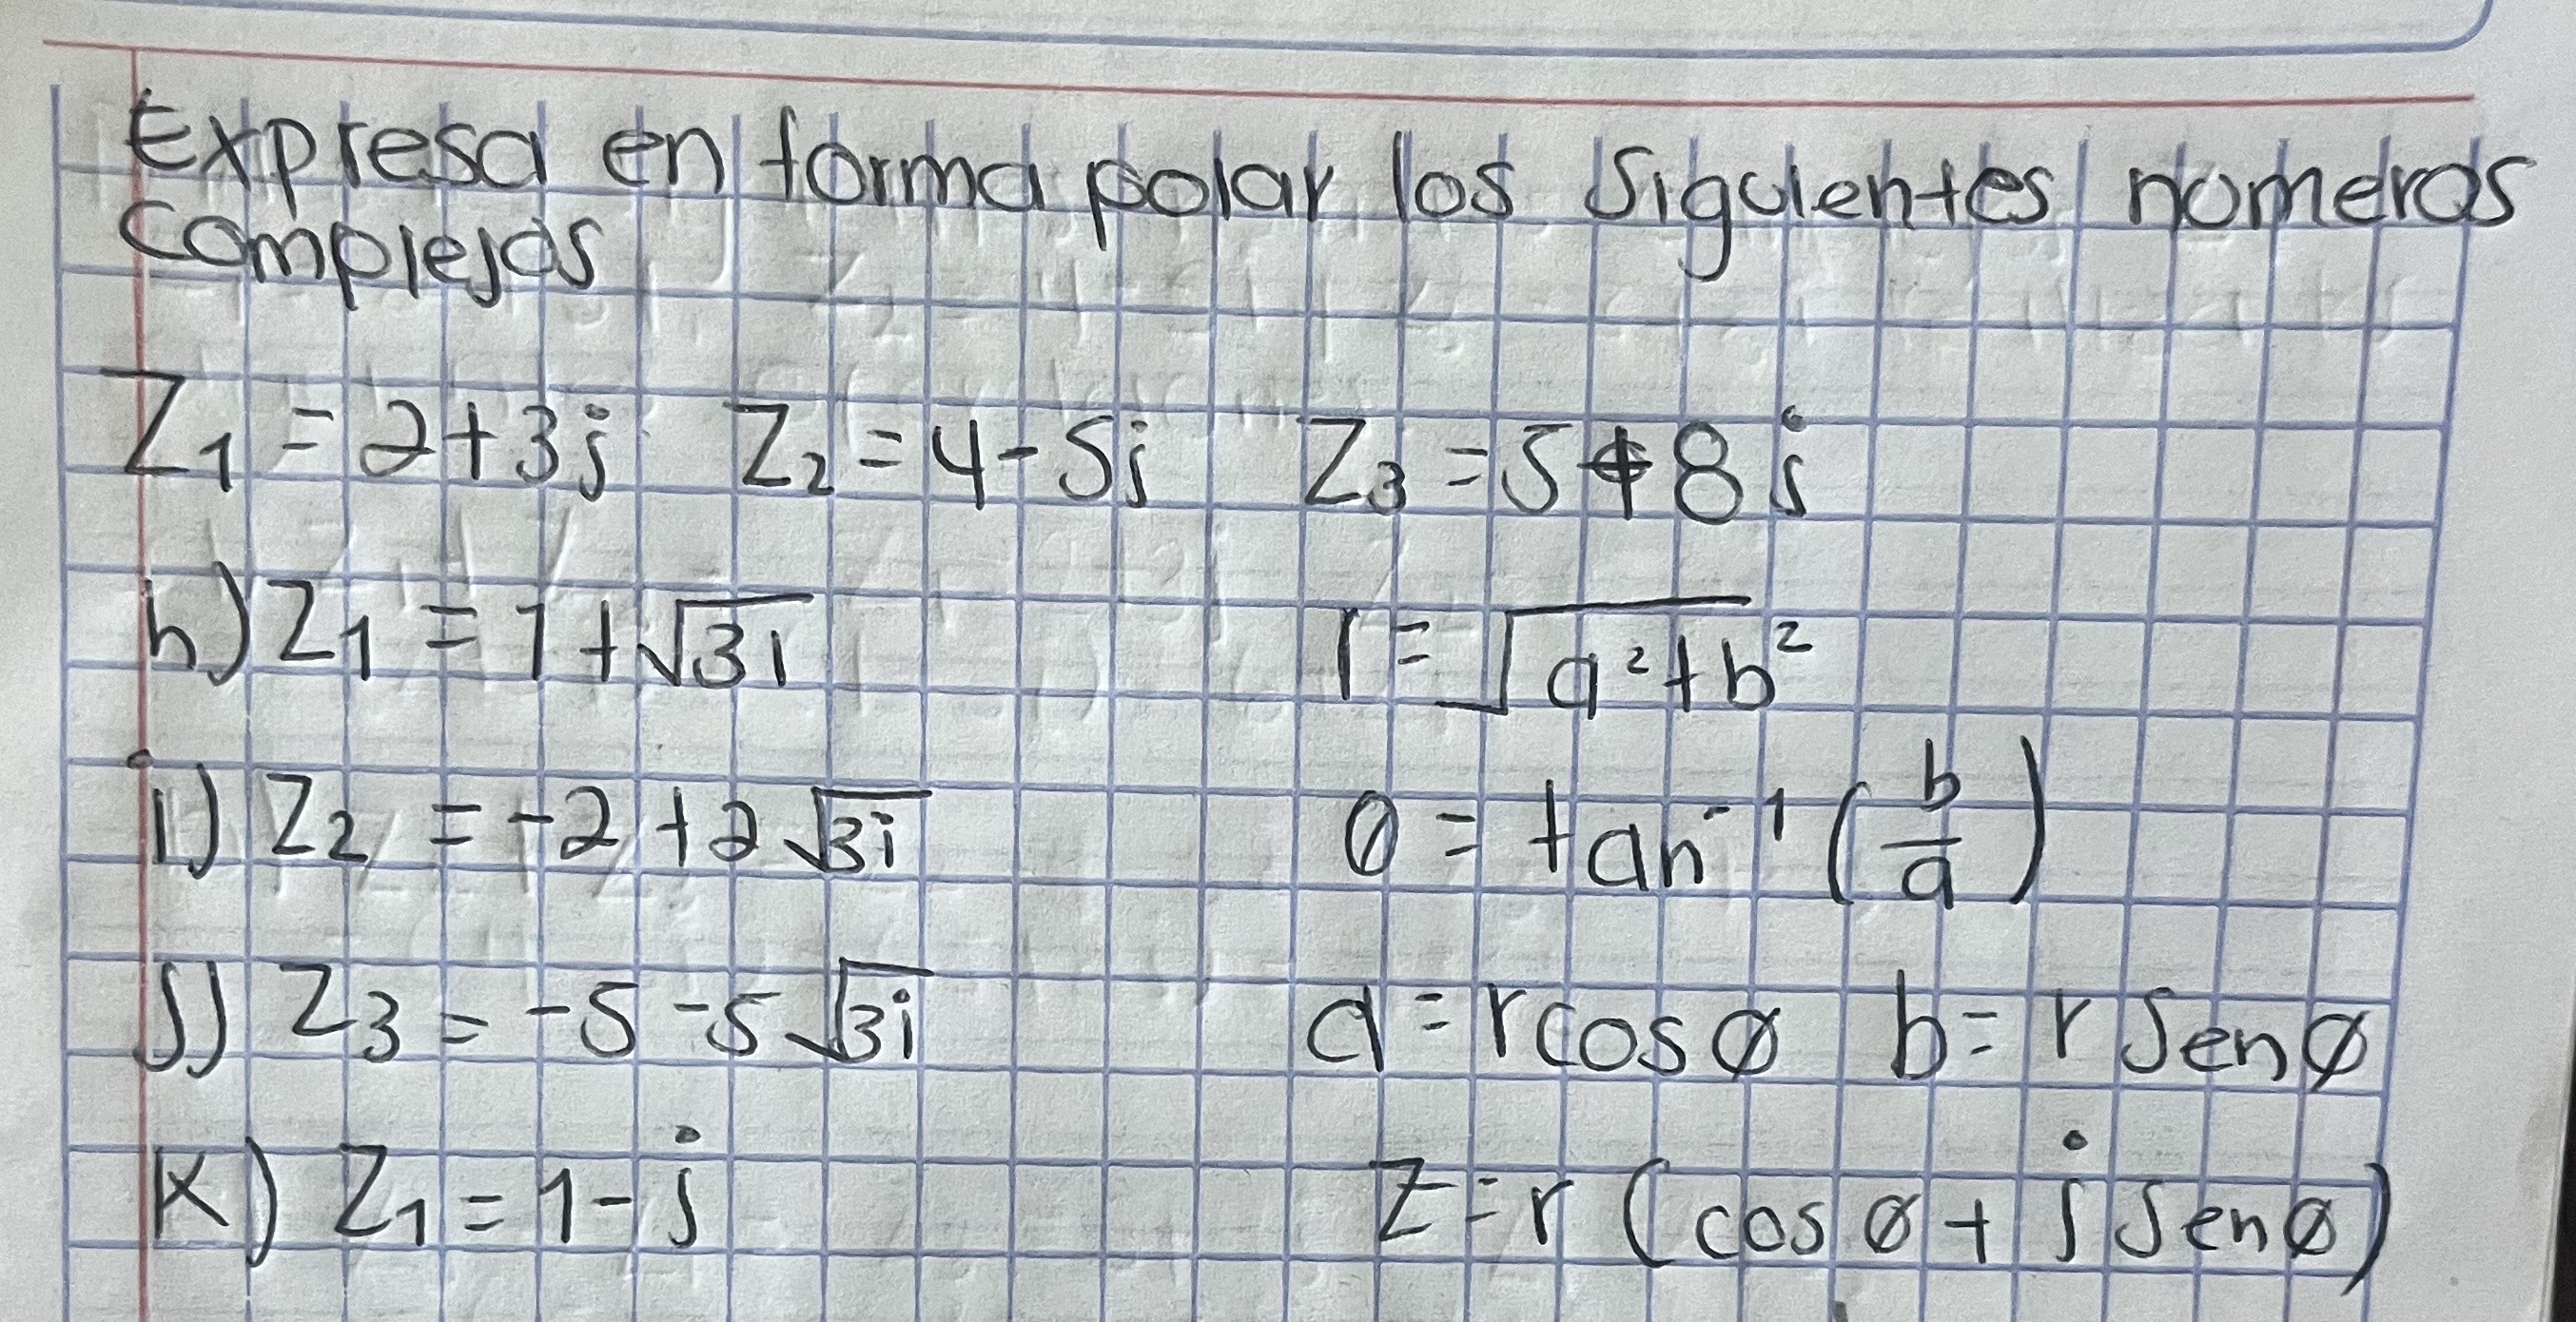 Expresa en forma polar los siguientes números
complejos
Z₁ = 2+3j Z₂ = 4-5j Z₃ = 5+8j
h) Z₁ = 1+√3i r = √a²+b²
i) Z₂ = -2+2√3i θ = tan⁻¹ (b/a)
j) Z₃ = -5-5√3i a = r cos ø b = r sen ø
K) Z₁ = 1-j Z = r (cos ø + j sen ø)